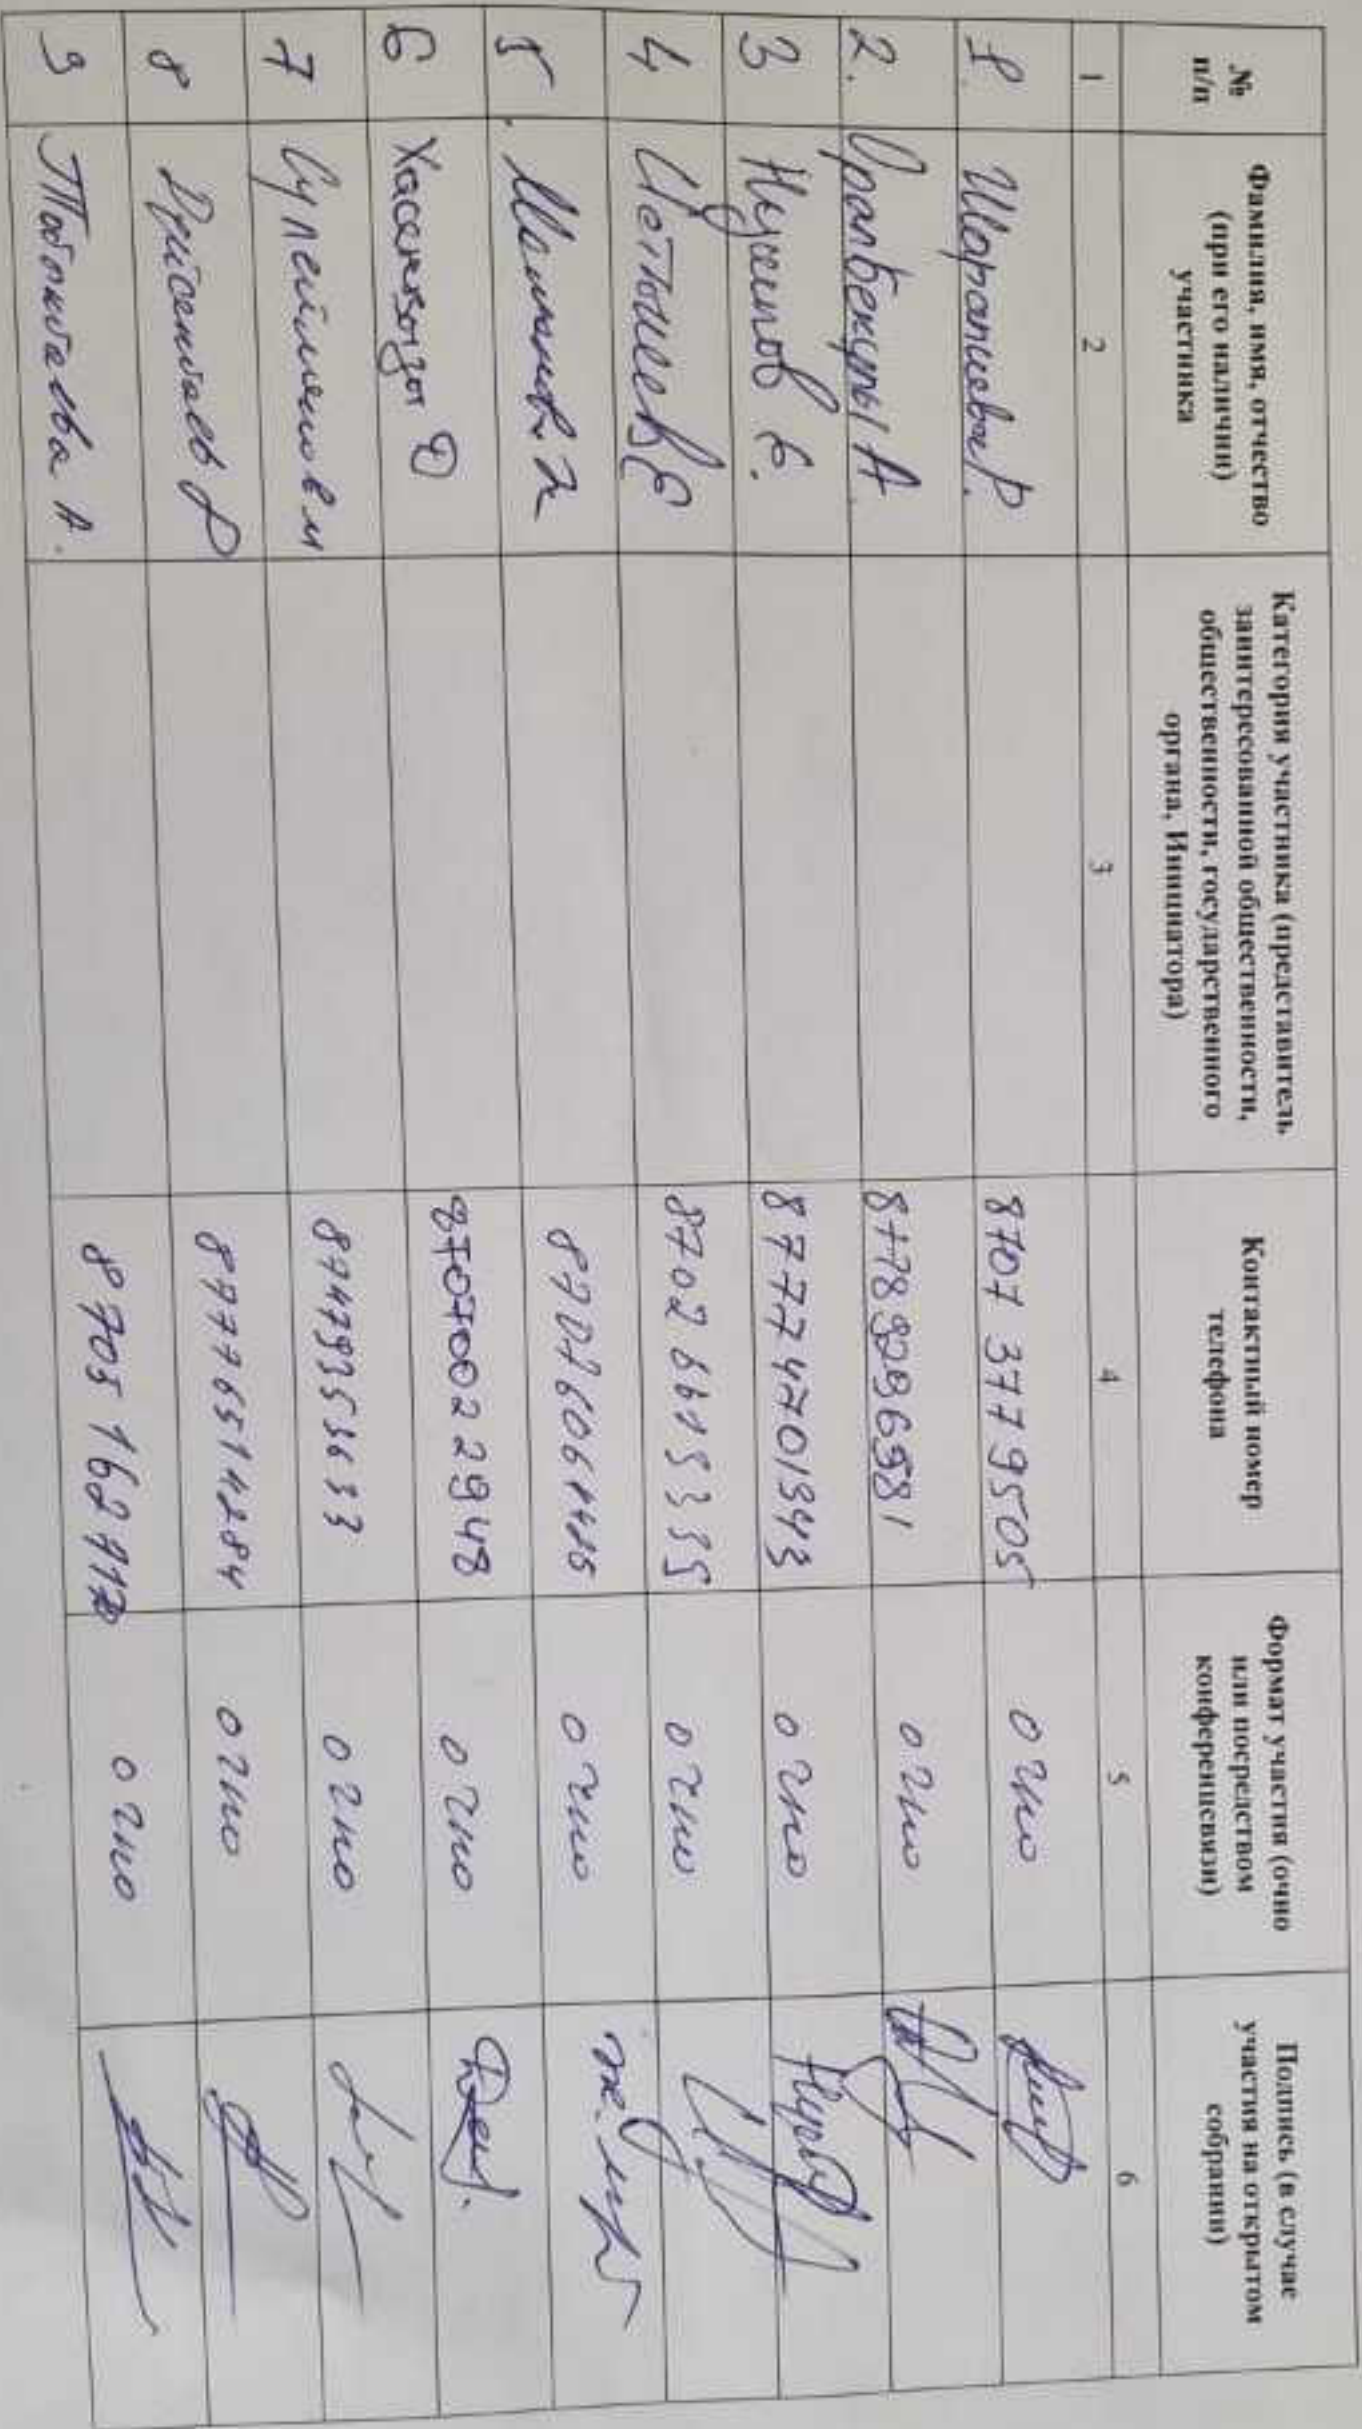 № п/п | Фамилия, имя, отчество (при его наличии) участника | Категория участника (представитель заинтересованной общественности, общественности, государственного органа, Инициатора) | Контактный номер телефона | Формат участия (очно или посредством конференцсвязи) | Подпись (в случае участия на открытом собрании)
1 | 2 | 3 | 4 | 5 | 6
1. | Шарапиева Р. | | 8707 377 9505 | очно |
2. | Оралбекұлы А. | | | очно |
3 | Нусипов Е. | | 87774701943 | очно |
4 | | | | очно |
5 | | | | очно |
6 | Хасенқызы Д | | 87070022948 | очно |
7 | Сулейменов М | | 87479353633 | очно |
8 | Дуйсенбаев | | 87776514284 | очно |
9 | А. | | 8705 162 | очно |